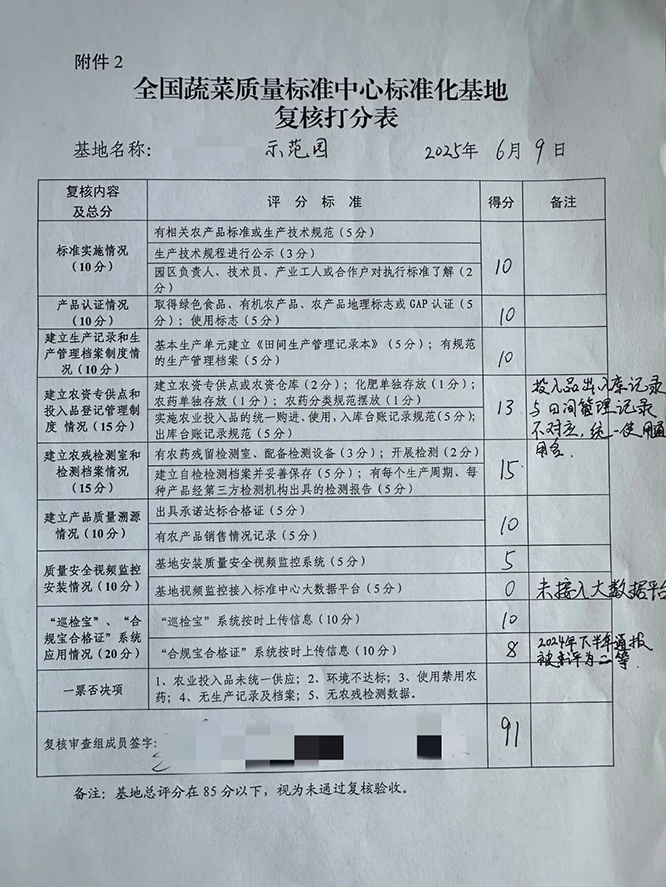 附件2
全国蔬菜质量标准中心标准化基地
复核打分表
基地名称: 示范园 2025年6月9日
复核内容
及总分
评分标准
得分
备注
标准实施情况
(10分)
有相关农产品标准或生产技术规范(5分)
生产技术规程进行公示(3分)
园区负责人、技术员、产业工人或合作户对执行标准了解(2
分)
10
产品认证情况
(10分)
取得绿色食品、有机农产品、农产品地理标志或GAP认证(5
分);使用标志(5分)
10
建立生产记录和生
产管理档案制度情
况(10分)
基本生产单元建立《田间生产管理记录本》(5分);有规范
的生产管理档案(5分)
10
建立农资专供点和
投入品登记管理制
度 情况(15分)
建立农资专供点或农资仓库(2分);化肥单独存放(1分);
农药单独存放(1分);农药分类规范摆放(1分)
实施农业投入品的统一购进、使用,入库台账记录规范(5分);
出库台账记录规范(5分)
13
投入品出入库记录
与田间管理记录
不对应,统一使用通
用名.
建立农残检测室和
检测档案情况
(15分)
有农药残留检测室、配备检测设备(3分);开展检测(2分)
建立自检检测档案并妥善保存(5分);有每个生产周期、每
种产品经第三方检测机构出具的检测报告(5分)
15
建立产品质量溯源
情况(10分)
出具承诺达标合格证(5分)
有农产品销售情况记录(5分)
10
质量安全视频监控
安装情况(10分)
基地安装质量安全视频监控系统(5分)
5
基地视频监控接入标准中心大数据平台(5分)
0
未接入大数据平台
“巡检宝”、“合
规宝合格证”系统
应用情况(20分)
“巡检宝”系统按时上传信息(10分)
10
“合规宝合格证”系统按时上传信息(10分)
8
2024年下半年通报
被评为二等.
一票否决项
1、农业投入品未统一供应;2、环境不达标;3、使用禁用农
药;4、无生产记录及档案;5、无农残检测数据。
复核审查组成员签字:
91
备注:基地总评分在85分以下,视为未通过复核验收。